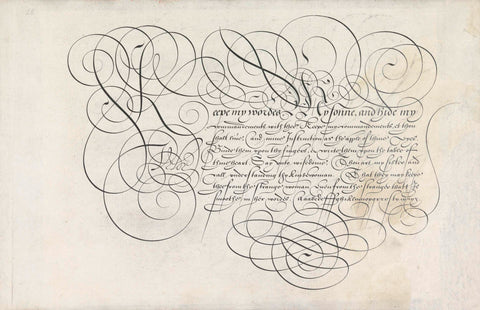 Keepe my wordes My sonne, and hide my
commaundements with thee. Keepe my commaundements, & thou
shalt liue, and mine instruction as the apple of thine Eyes.
Binde them upon thy fingers, & write them upon the table of
thine heart. Say unto wisedome, Thou art my sister, and
call understanding thy kinswoman. That they may keepe
thee from the strange woman, Euen from the stranger that is
smothe in her wordes.